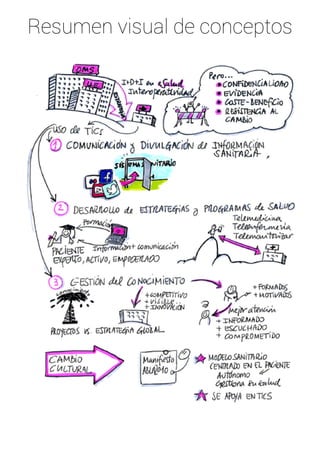 Resumen visual de conceptos
OMS
I+D+I en eSalud
Interoperatividad
Pero...
CONFIDENCIALIDAD
EVIDENCIA
COSTE-BENEFICIO
RESISTENCIA AL
CAMBIO
USO de TICs
1 COMUNICACIÓN y DIVULGACIÓN de INFORMACIÓN
SANITARIA
SISTEMA SANITARIO
2 DESARROLLO de ESTRATEGIAS y PROGRAMAS de SALUD
Telemedicina
Teleenfermería
Telemonitorizar
Formación
Información + comunicación
PACIENTE
EXPERTO, ACTIVO, EMPODERADO
3 GESTIÓN del CONOCIMIENTO
+ COMPETITIVO
+ visible
+ INNOVACIÓN
+ FORMADOS
+ MOTIVADOS
Mejor atención
+ INFORMADO
+ ESCUCHADO
+ COMPROMETIDO
PROYECTOS vs. ESTRATEGIA GLOBAL
CAMBIO
CULTURAL
Manifiesto
MODELO SANITARIO
CENTRADO EN EL PACIENTE
AUTÓNOMO
Gestiona su salud
SE APOYA EN TICS